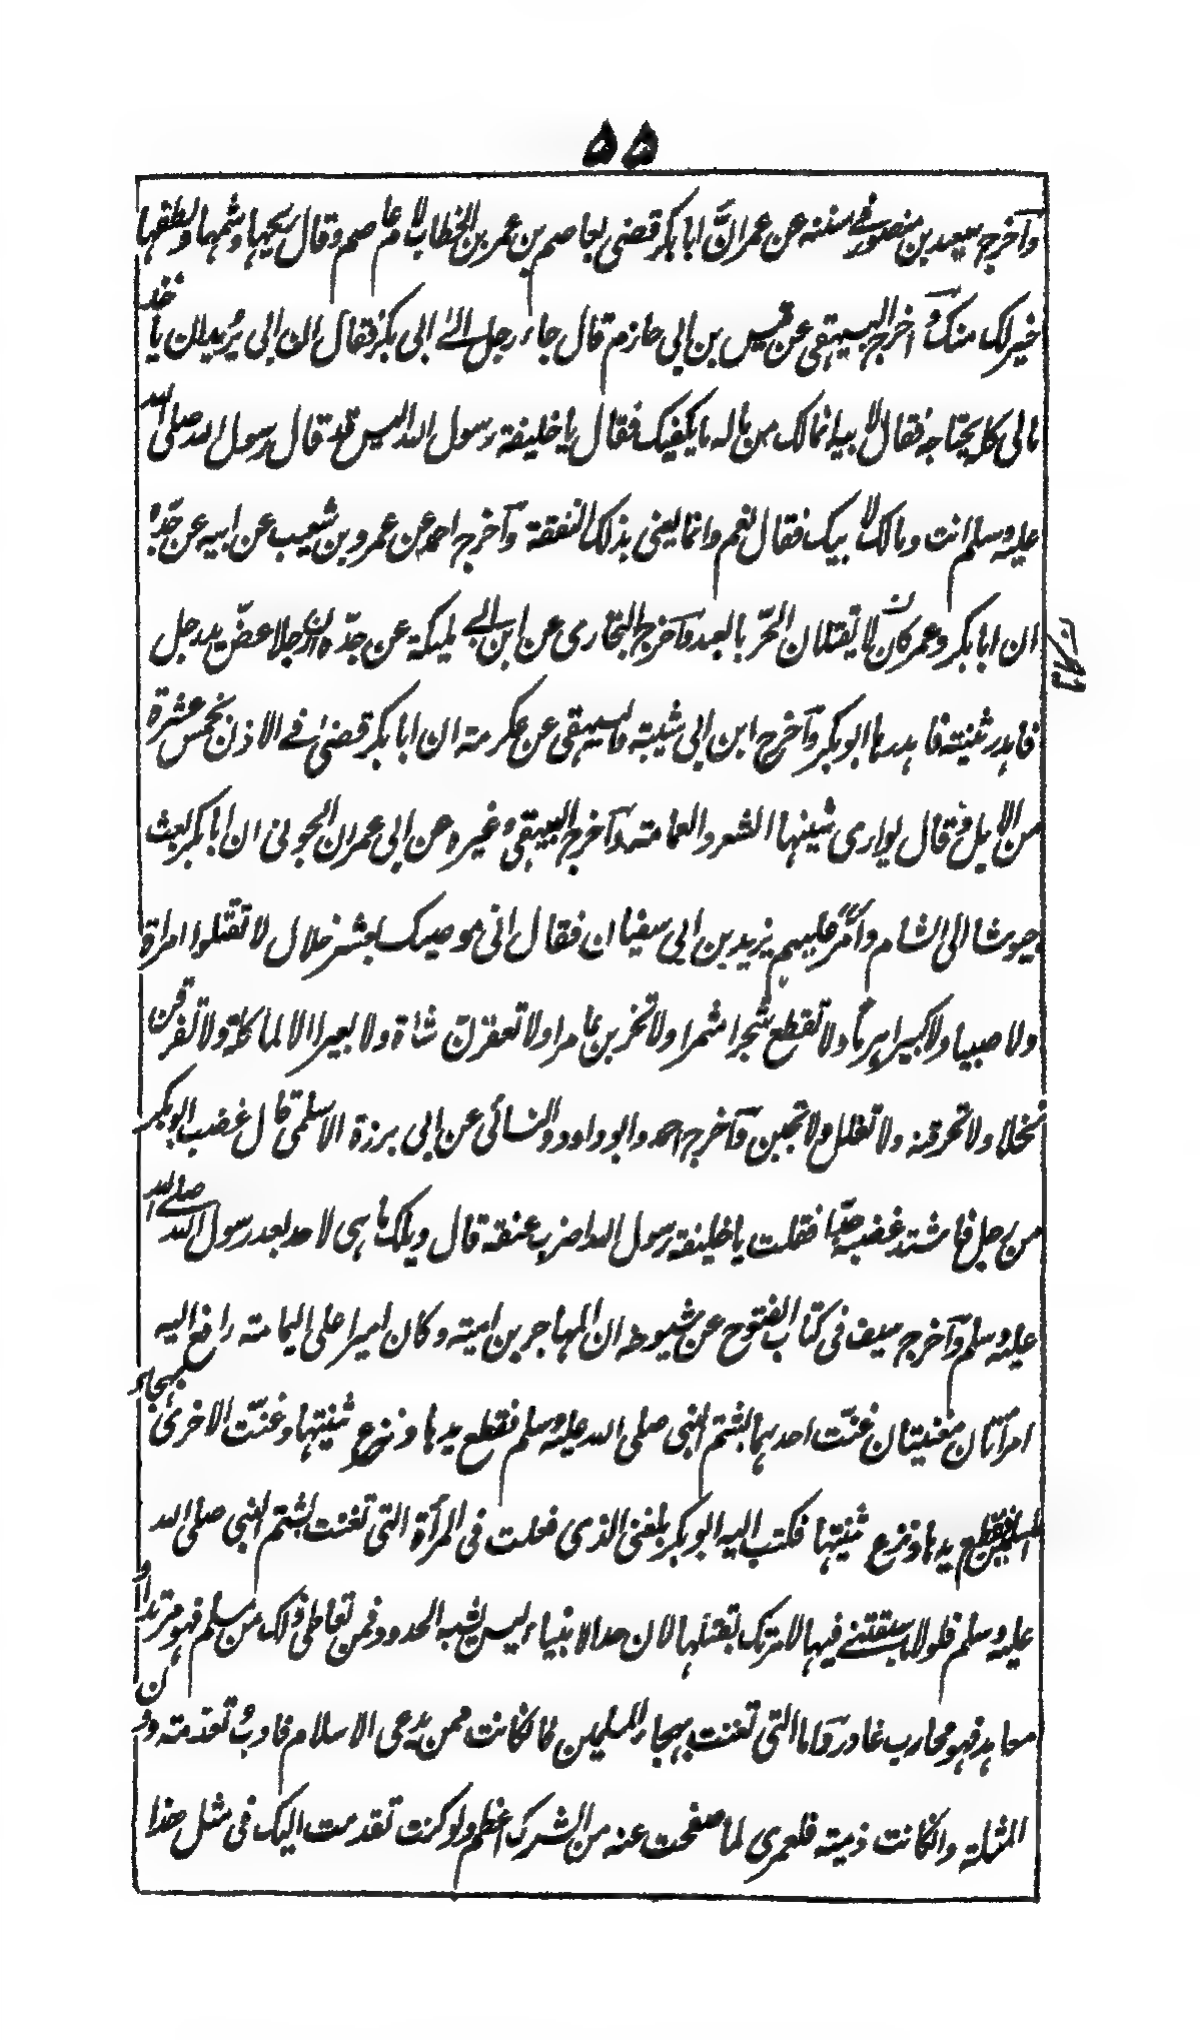 ۵۵
وآخرج سعيد بن منصور في سننه عن عمران ابا بكر قضى لعاصم بن عمر بن الخطاب لام عاصم وقال ريحها وشمها ولطفها
خير لك منك وآخرج البيهقي عن قيس بن ابي حازم قال جاء رجل الى ابي بكر فقال ان ابي يريد ان ياخذ
مالي كله يجتاحه فقال لابيه انما لك من ماله ما يكفيك فقال يا خليفة رسول الله اليس قد قال رسول الله صلى الله
عليه وسلم انت ومالك لابيك فقال نعم وانما يعني بذلك النفقة وآخرج احمد عن عمرو بن شعيب عن ابيه عن جده
ان ابا بكر وعمر كانا لا يقتلان الحر بالعبد وآخرج البخاري عن ابن ابي مليكة عن جده ان رجلا عض يد رجل
فاندر ثنيته فاهدرها ابو بكر وآخرج ابن ابي شيبة والبيهقي عن عكرمة ان ابا بكر قضى في الاذن بخمس عشرة
من الابل وقال يواري شينها الشعر والعمامة وآخرج البيهقي وغيره عن ابي عمران الجوني ان ابا بكر بعث
جيوشا الى الشام وامر عليهم يزيد بن ابي سفيان فقال اني موصيك بعشر خلال لا تقتلوا امراة
ولا صبيا ولا كبيرا هرما ولا تقطع شجرا مثمرا ولا تخربن عامرا ولا تعقرن شاة ولا بعيرا الا لماكلة ولا تفرقن
نخلا ولا تحرقنه ولا تغلل ولا تجبن وآخرج احمد وابو داود والنسائي عن ابي برزة الاسلمي قال غضب ابو بكر
من رجل فاشتد غضبه جدا فقلت يا خليفة رسول الله اضرب عنقه قال ويلك ما هي لاحد بعد رسول الله صلى الله
عليه وسلم وآخرج سيف في كتاب الفتوح عن شيوخه ان المهاجر بن امية وكان اميرا على اليمامة رافع اليه
امراتان مغنيتان غنت احدهما بشتم النبي صلى الله عليه وسلم فقطع يدها ونزع ثنيتها وغنت الاخرى بهجاء
المسلمين فقطع يدها ونزع ثنيتها فكتب اليه ابو بكر بلغني الذي فعلت في المرأة التي تغنت بشتم النبي صلى الله
عليه وسلم فلولا ما سبقتني فيها لامرتك بقتلها لان حد الانبياء ليس يشبه الحدود فمن تعاطى ذلك من مسلم فهو مرتد او
معاهد فهو محارب غادر واما التي تغنت بهجاء المسلمين فان كانت ممن يدعي الاسلام فادب وتقدمة دون
المثلة وان كانت ذمية فلعمري لما صفحت عنه من الشرك اعظم ولو كنت تقدمت اليك في مثل هذا